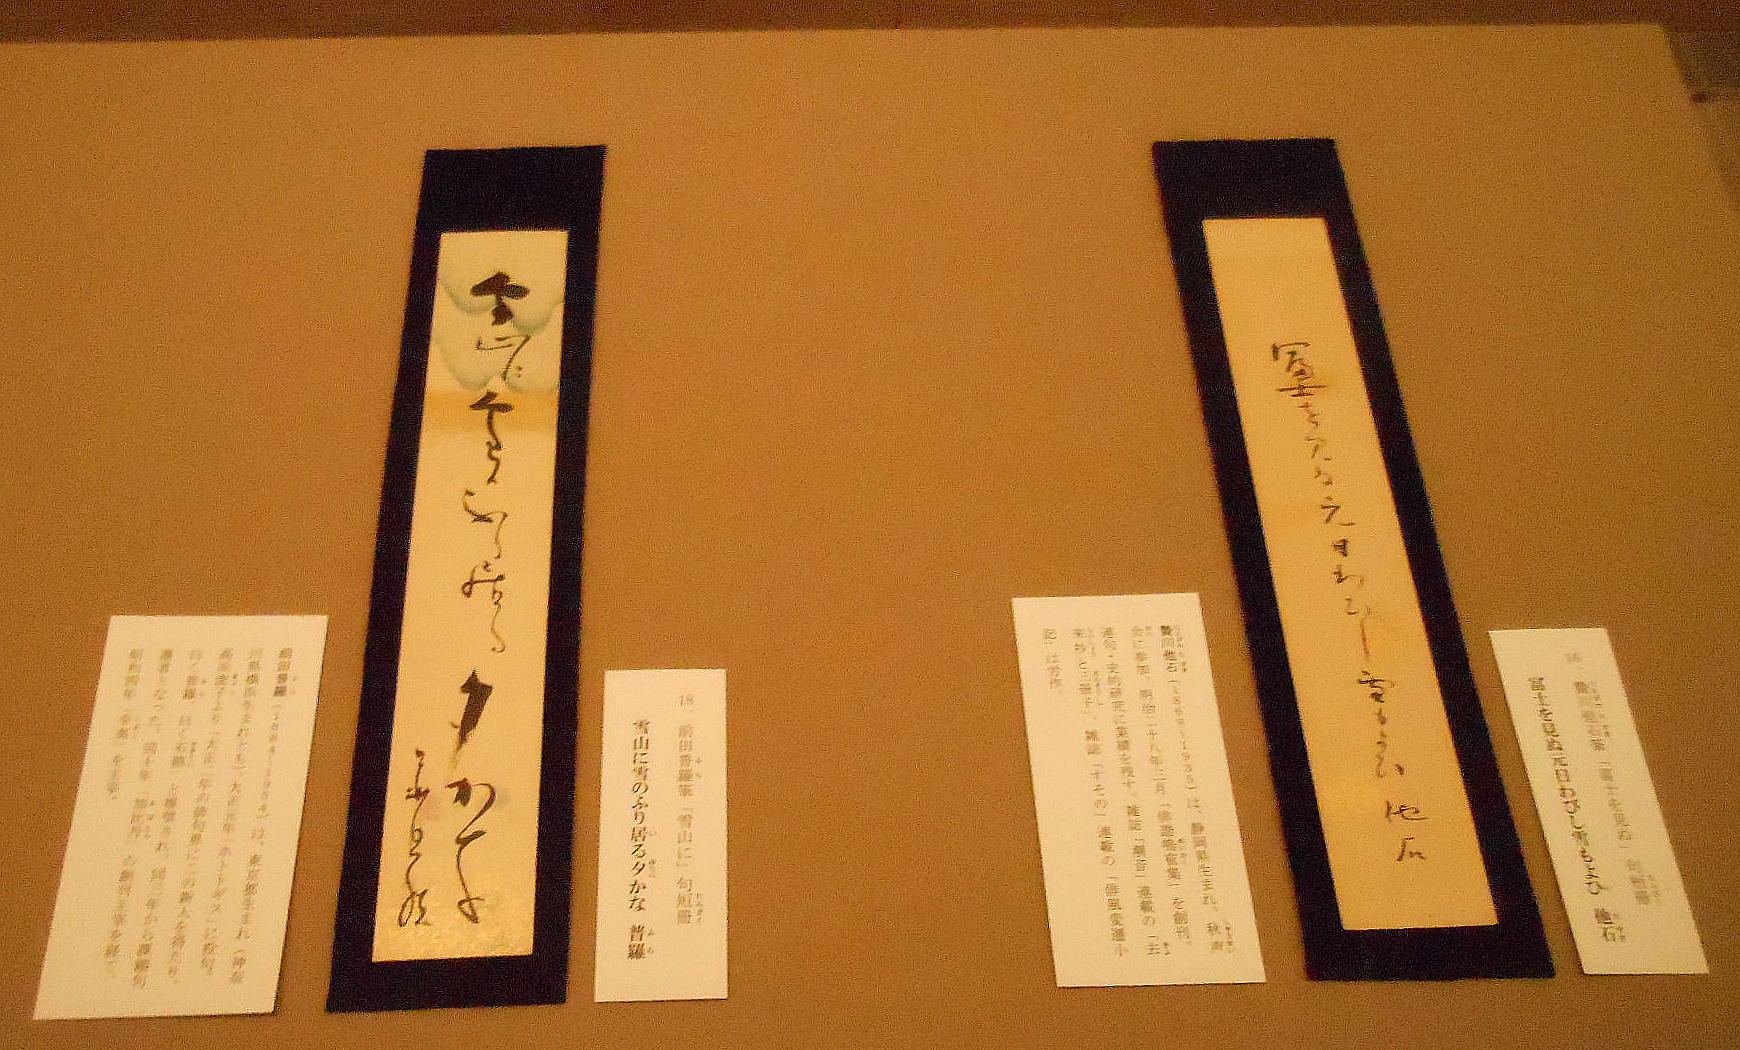 16 贄川他石筆「富士を見ぬ」句短冊
富士を見ぬ元日わびし雪もよひ 他石
富士を見ぬ元日わびし雪もよひ 他石
贄川他石(1868〜1935)は、静岡県生まれ。秋声
会に参加。明治二十八年二月「俳諧鴨東集」を創刊。
連句・史的研究に業績を残す。雑誌
連載の「去
来抄と三冊子」、雑誌「すその」連載の「俳風変遷小
記」は労作。
18 前田普羅筆「雪山に」句短冊
雪山に雪のふり居る夕かな 普羅
雪山に雪のふり居る夕かな 普羅
前田普羅(1884〜1954)は、東京都生まれ(神奈
川県横浜生まれとも)。大正元年「ホトトギス」に投句。
高浜虚子より「大正二年の俳句界に二の新人を得たり。
曰く普羅、曰く石鼎」と推賞され、同三年から課題句
選者となった。同十年「加比丹」の創刊主宰を経て、
昭和四年「辛夷」を主宰。